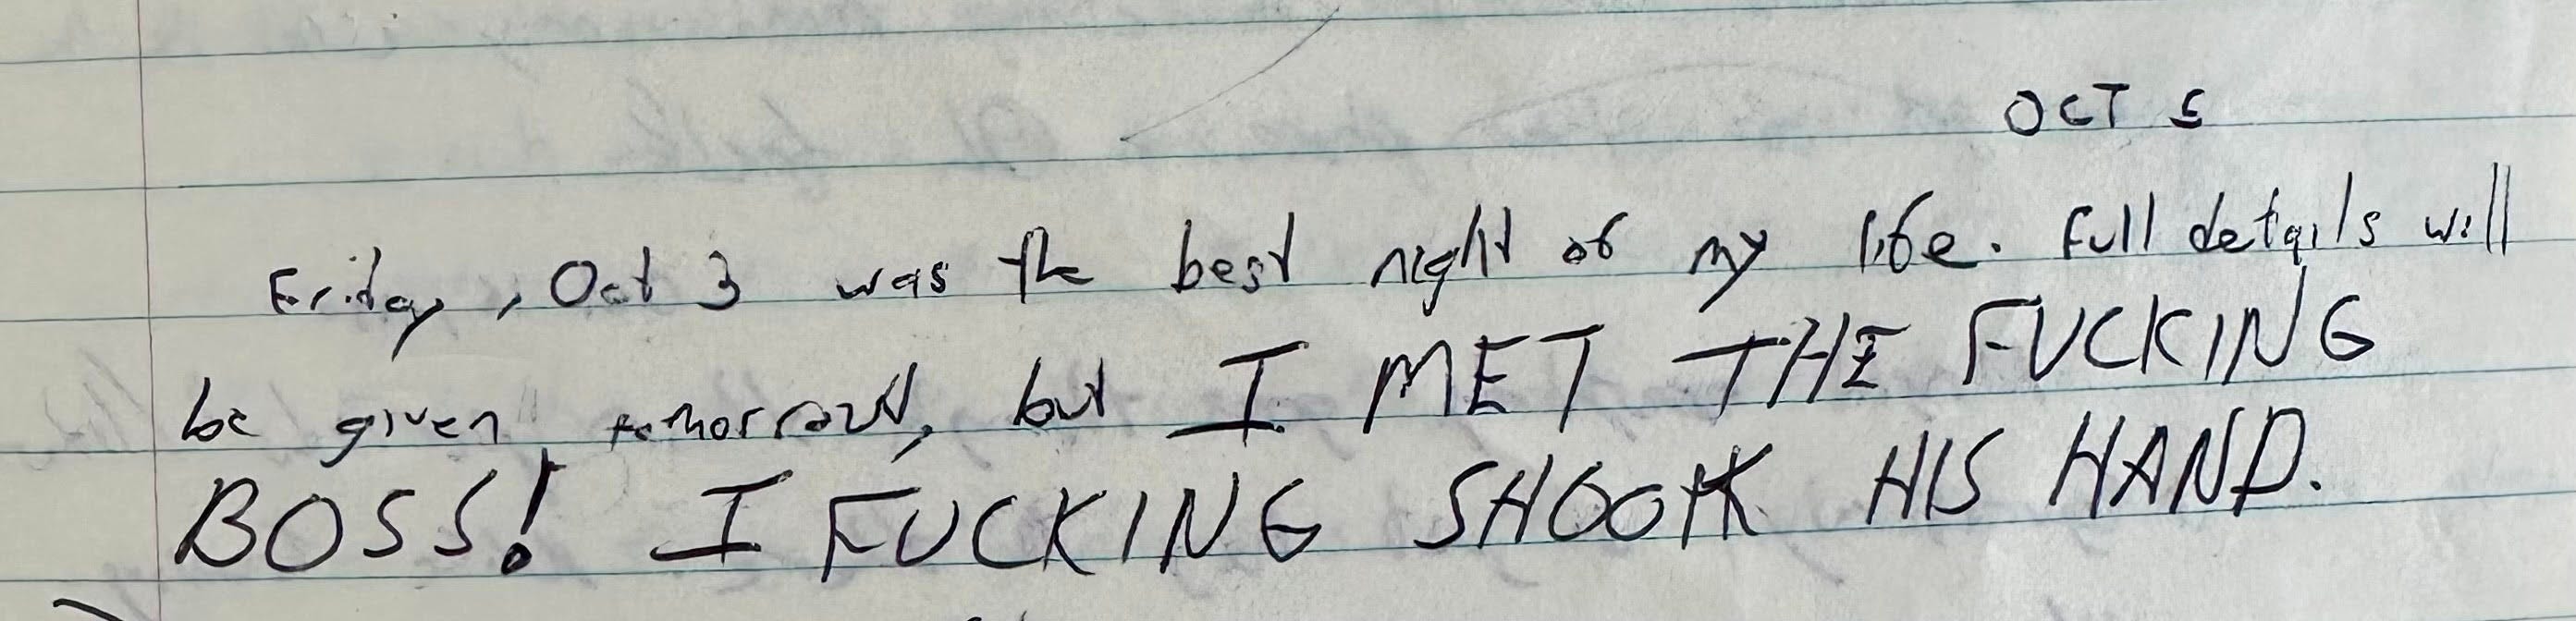 OCT 5
Friday, Oct 3 was the best night of my life. Full details will
be given tomorrow, but I MET THE FUCKING
BOSS! I FUCKING SHOOK HIS HAND.